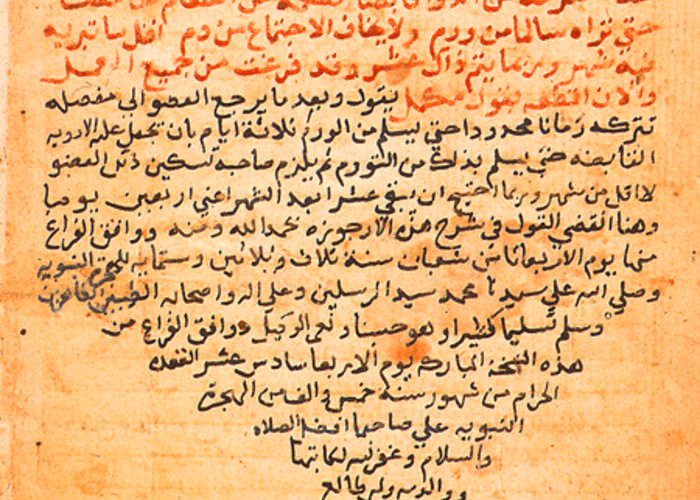 حتى تراه سالما من ورم ولا يخاف الاجتماع من دم اقل ما تبريه
فيه شهر وربما يتم ذاك عشر وقد فرغت من جميع العمل
والان اقطعه بقول مكمل يقول وبعد ما يرجع العضو الى مفصله
تتركه زمانا محدودا حتى يسلم من الورم ثلاثة ايام بان تجعل عليه الادويه
القابضه حتى يسلم بذلك من التورم ثم يلزم صاحبه تسكين ذلك العضو
لا اقل من شهر وربما احتيج ان يبقى عشرا بعد الشهر اعني اربعين يوما
وهنا انقضي القول في شرح هذه الارجوزه بحمد الله ومنه ووافق الفراغ
منها يوم الاربعا من شعبان سنة ثلاث وثلاثين وستمايه للهجرة النبويه
وصلى الله على سيدنا محمد سيد المرسلين وعلى اله واصحابه الطيبين
وسلم تسليما كثيرا وهو حسبنا ونعم الوكيل ووافق الفراغ من
هذه النسخة المباركه يوم الاربعا سادس عشر القعده
الحرام من شهور سنة خمس والف من الهجرة
النبويه على صاحبها افضل الصلاه
والسلام وغفر الله لكاتبها
ووالديه ولمن طالع